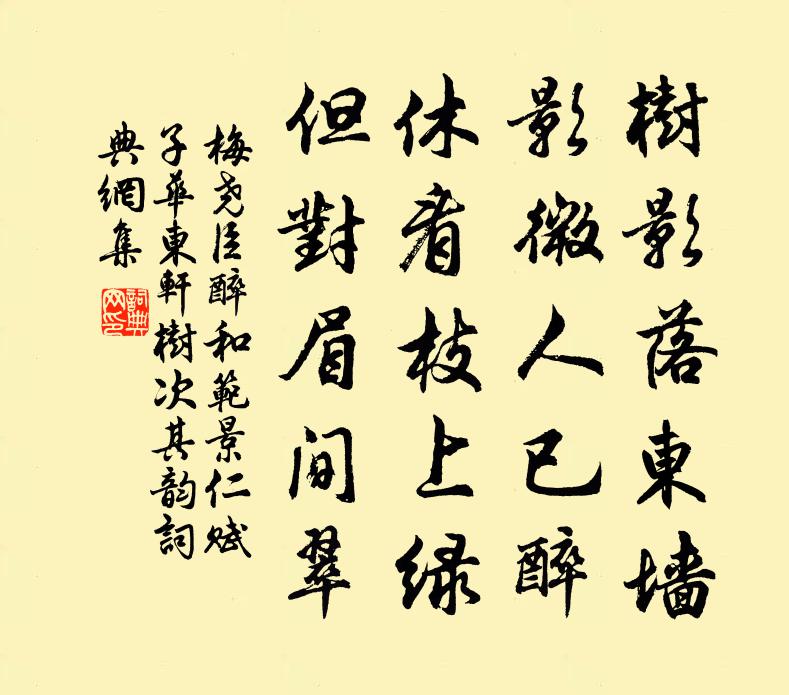 樹影落東墻
影微人已醉
休看枝上绿
但對眉間翠
梅尧臣醉和範景仁赋
子華東軒樹次其韵詞
典網集
詞典
网印